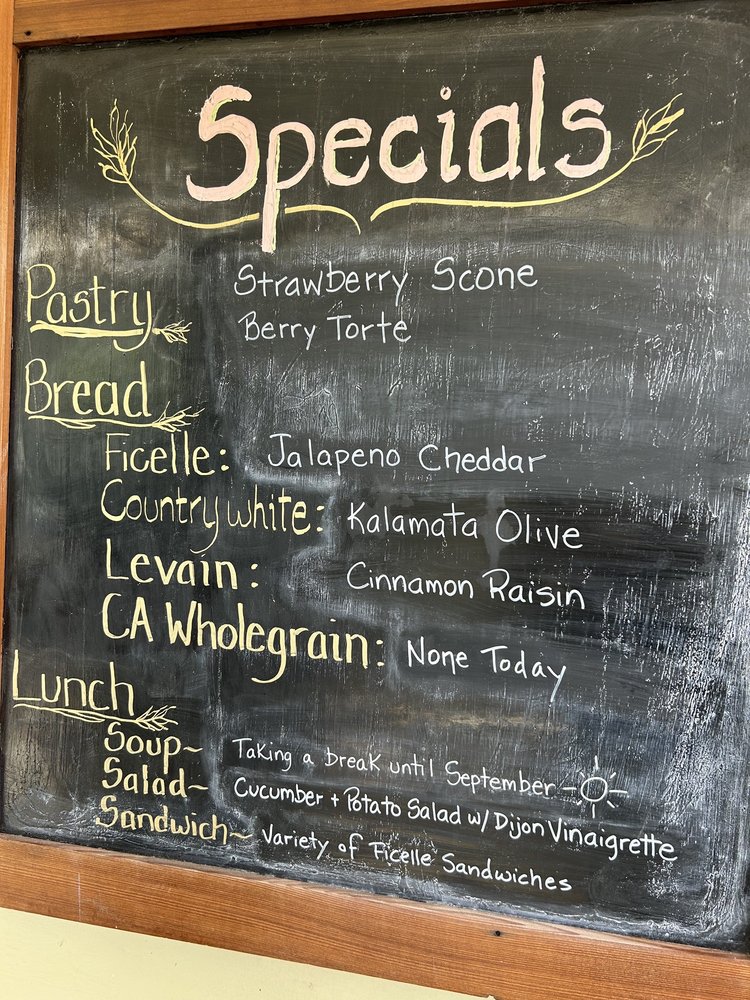 Specials
Pastry Strawberry Scone
Berry Torte
Bread
Ficelle: Jalapeno Cheddar
Country white: Kalamata Olive
Levain: Cinnamon Raisin
CA Wholegrain: None Today
Lunch
Soup~ Taking a break until September
Salad~ Cucumber + Potato Salad w/ Dijon Vinaigrette
Sandwich~ Variety of Ficelle Sandwiches